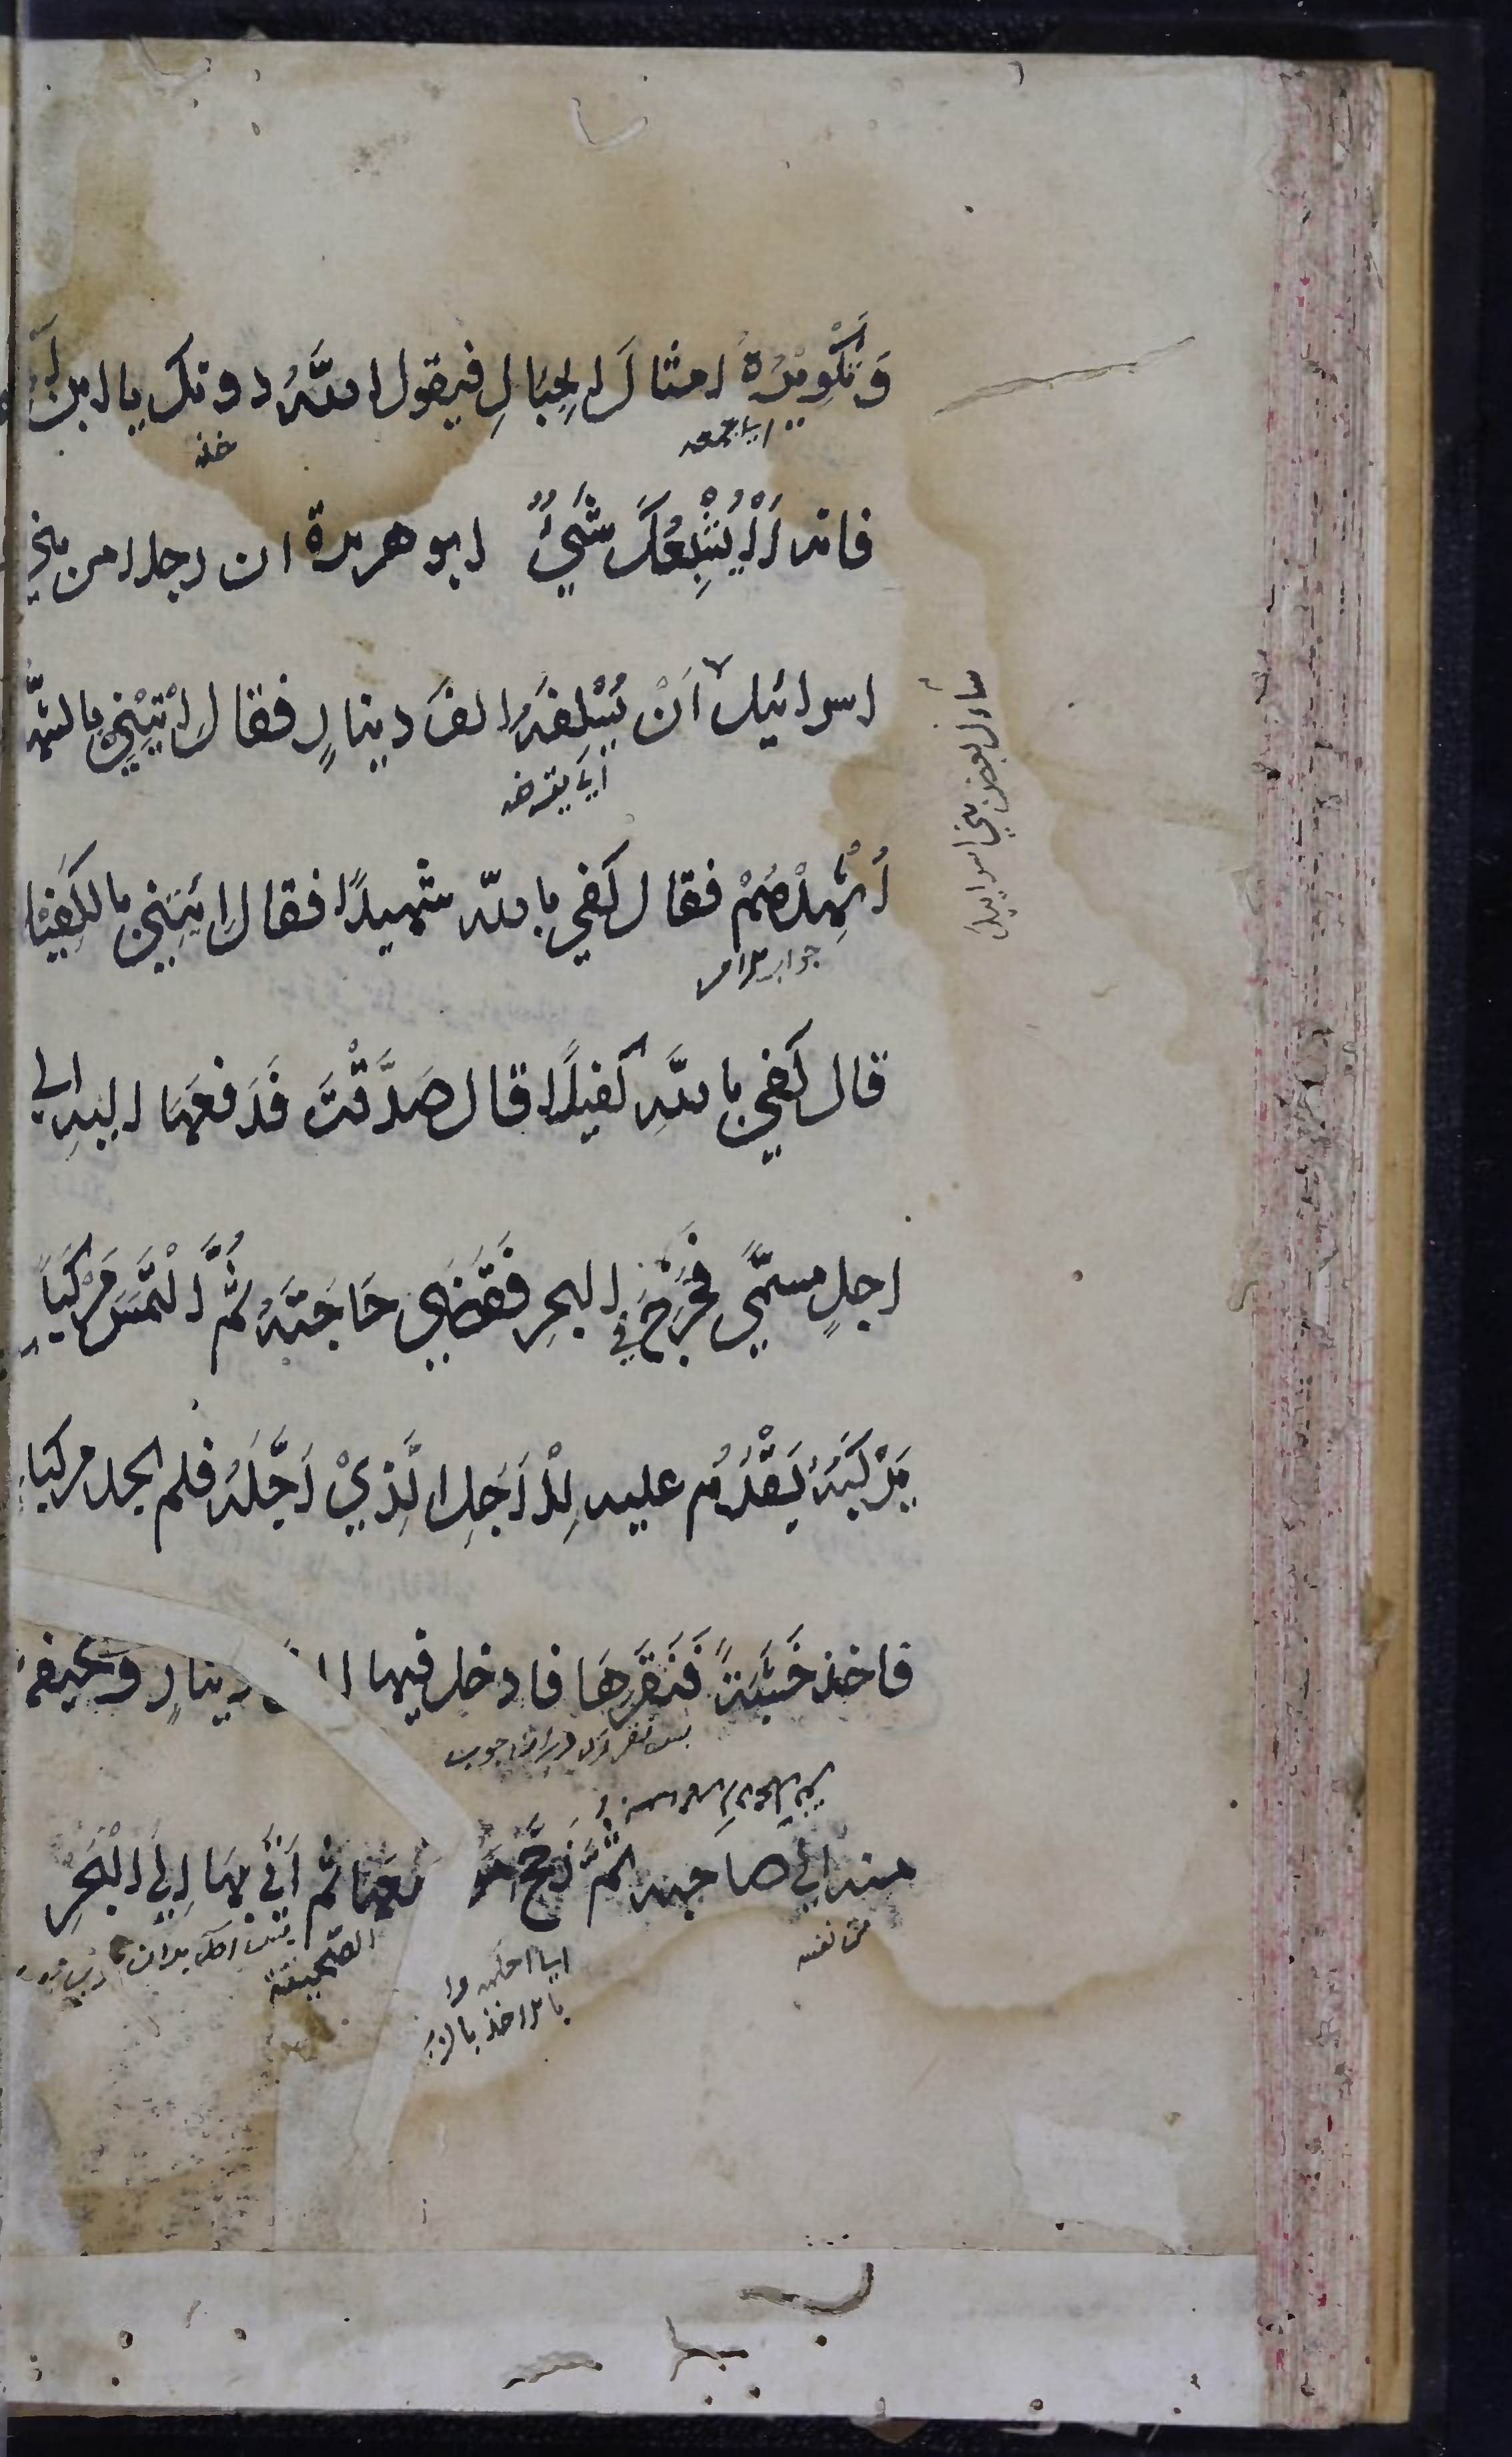 وَتَكْوِيْرُهُ امثالَ الجِبَالِ فيقول اللّٰهُ دونك يا ابن
اي جمعه
خذ
فانه لَا يُشْبِعُكَ شَيْءٌ ابو هريرة ان رجلا من بني
اسرائيل اَنْ يُسْلِفَهُ الفَ دينارٍ فقال اِئْتِيْنِي بالشهد
اي يقرضه
سأل بعض بني اسرائيل
اُشْهِدْهُمْ فقال كَفي باللّه شهيدًا فقال اِئتِنِي بالكَفِيْل
جواب الامر
قال كَفي باللّهِ كفيلًا قال صَدَّقْتَ فَدَفعَهَا اليهِ الي
اجلٍ مسمّي فخَرَجَ في البحرِ فَقَضَي حَاجَتَهُ ثُمَّ الْتَمَسَ مَرْكَبًا
يَرْكَبُهُ يَقْدَمُ عليه لِلْاَجَلِ الَّذِيْ اَجَّلَهُ فلم يجد مركبا
فاخذ خَشَبَةً فَنَقَرَهَا فادخل فيها الفَ دينارٍ وصحيفة
منه الي صاحبه ثُمَّ زَجَّجَ مَوْضِعَهَا ثم اَتَي بهَا اِلَي الْبَحْرِ
من نفسه
الصحيفة